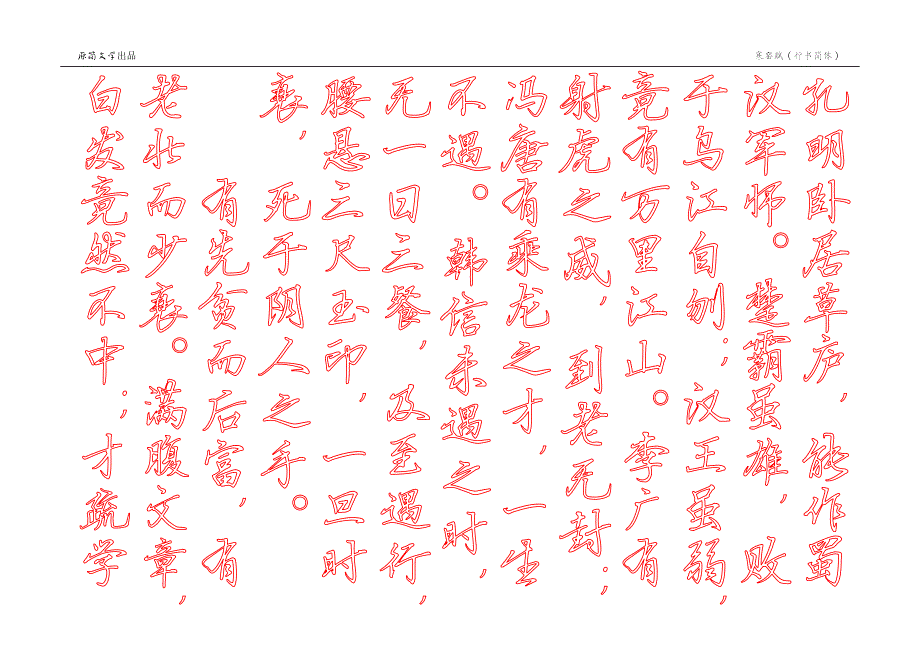 文学出品
寒窑赋（行书简体）
孔明卧居草庐，能作蜀
汉军师。楚霸虽雄，败
于乌江自刎；汉王虽弱，
竟有万里江山。李广有
射虎之威，到老无封；
冯唐有乘龙之才，一生
不遇。韩信未遇之时，
无一日三餐，及至遇行，
腰悬三尺玉印，一旦时
衰，死于阴人之手。
有先贫而后富，有
老壮而少衰。满腹文章，
白发竟然不中；才疏学